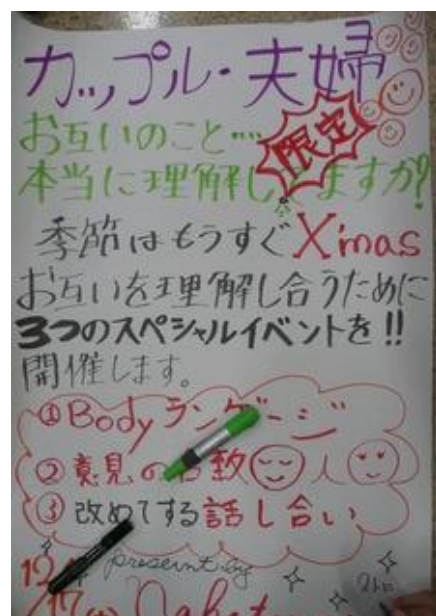 カップル・夫婦
限定
お互いのこと…
本当に理解してますか?
季節はもうすぐXmas
お互いを理解し合うために
3つのスペシャルイベントを!!
開催します。
①Bodyランゲージ
②意見の合致
③改めてする話し合い
present by